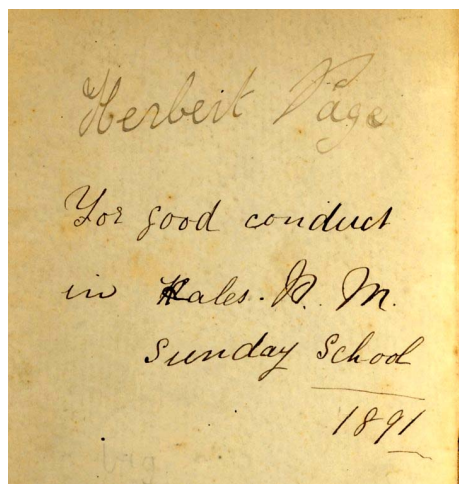 Herbert Page
For good conduct
in Hales. P. M.
Sunday School
1891